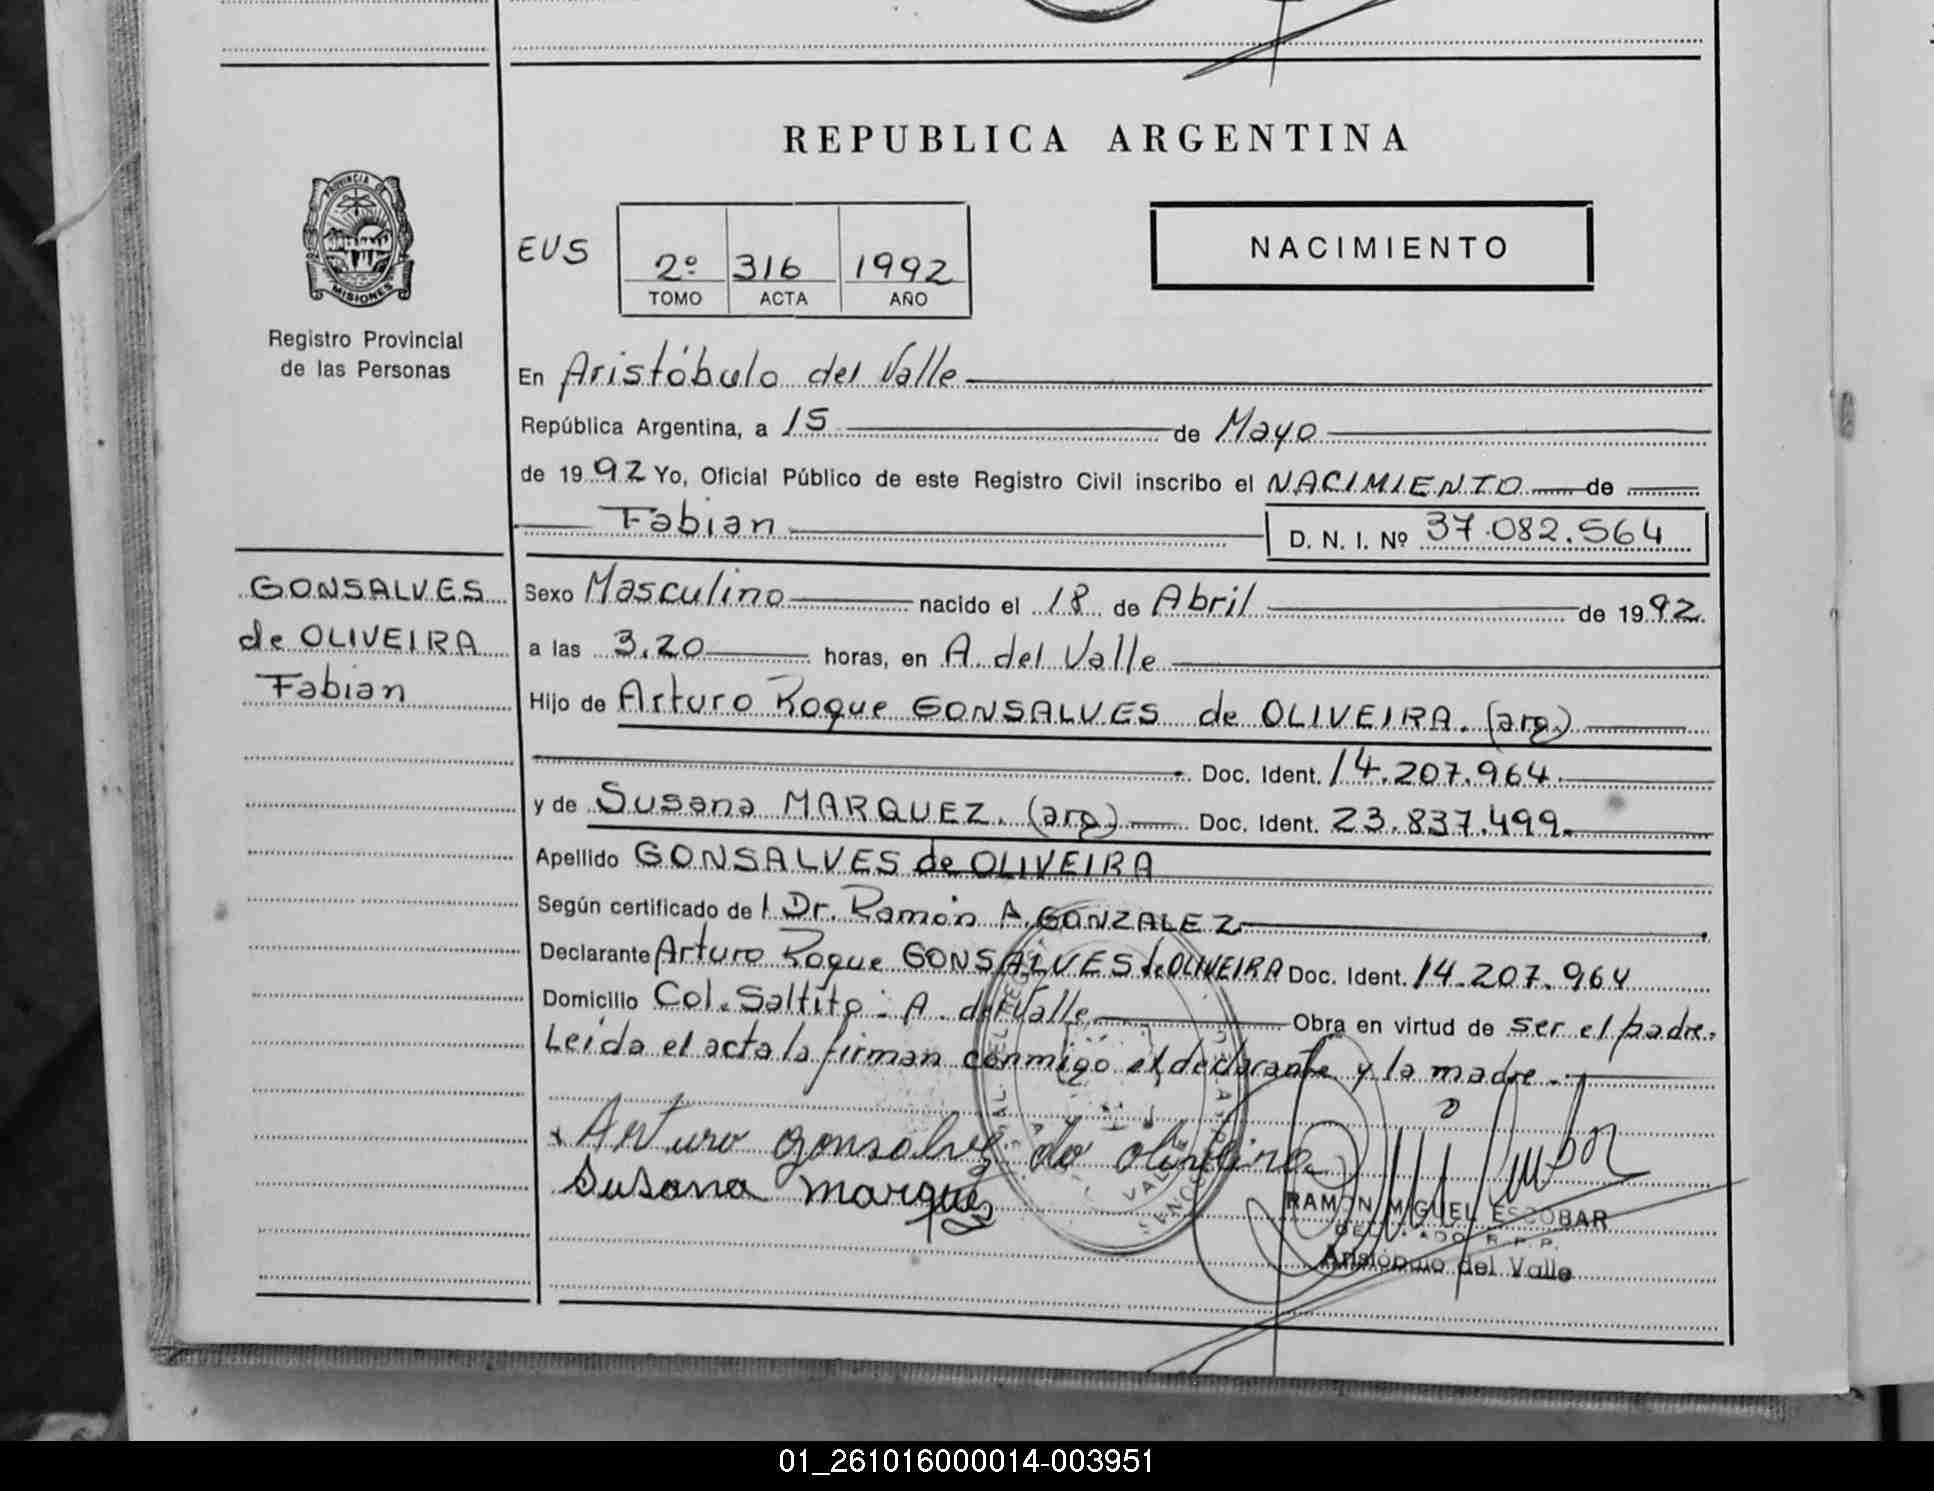 REPUBLICA ARGENTINA
PROVINCIA DE
MISIONES
Registro Provincial
de las Personas
EUS
2º 316 1992
TOMO ACTA AÑO
NACIMIENTO
En Aristóbulo del Valle
República Argentina, a 15 de Mayo
de 1992 Yo, Oficial Público de este Registro Civil inscribo el NACIMIENTO de
Fabian
D. N. I. Nº 37.082.564
GONSALVES
de OLIVEIRA
Fabian
Sexo Masculino nacido el 18 de Abril de 1992.
a las 3,20 horas, en A. del Valle
Hijo de Arturo Roque GONSALVES de OLIVEIRA. (arg.)
Doc. Ident. 14.207.964.
y de Susana MARQUEZ. (arg.) Doc. Ident. 23.837.499.
Apellido GONSALVES de OLIVEIRA
Según certificado de l Dr. Ramón A. GONZALEZ
Declarante Arturo Roque GONSALVES de OLIVEIRA Doc. Ident. 14.207.964
Domicilio Col. Saltito: A. del Valle Obra en virtud de ser el padre.
Leída el acta la firman conmigo el declarante y la madre.
Arturo gonsalve do oliveira
Susana marques
RAMON MIGUEL ESCOBAR
R. P. P.
Aristóbulo del Valle
01_261016000014-003951